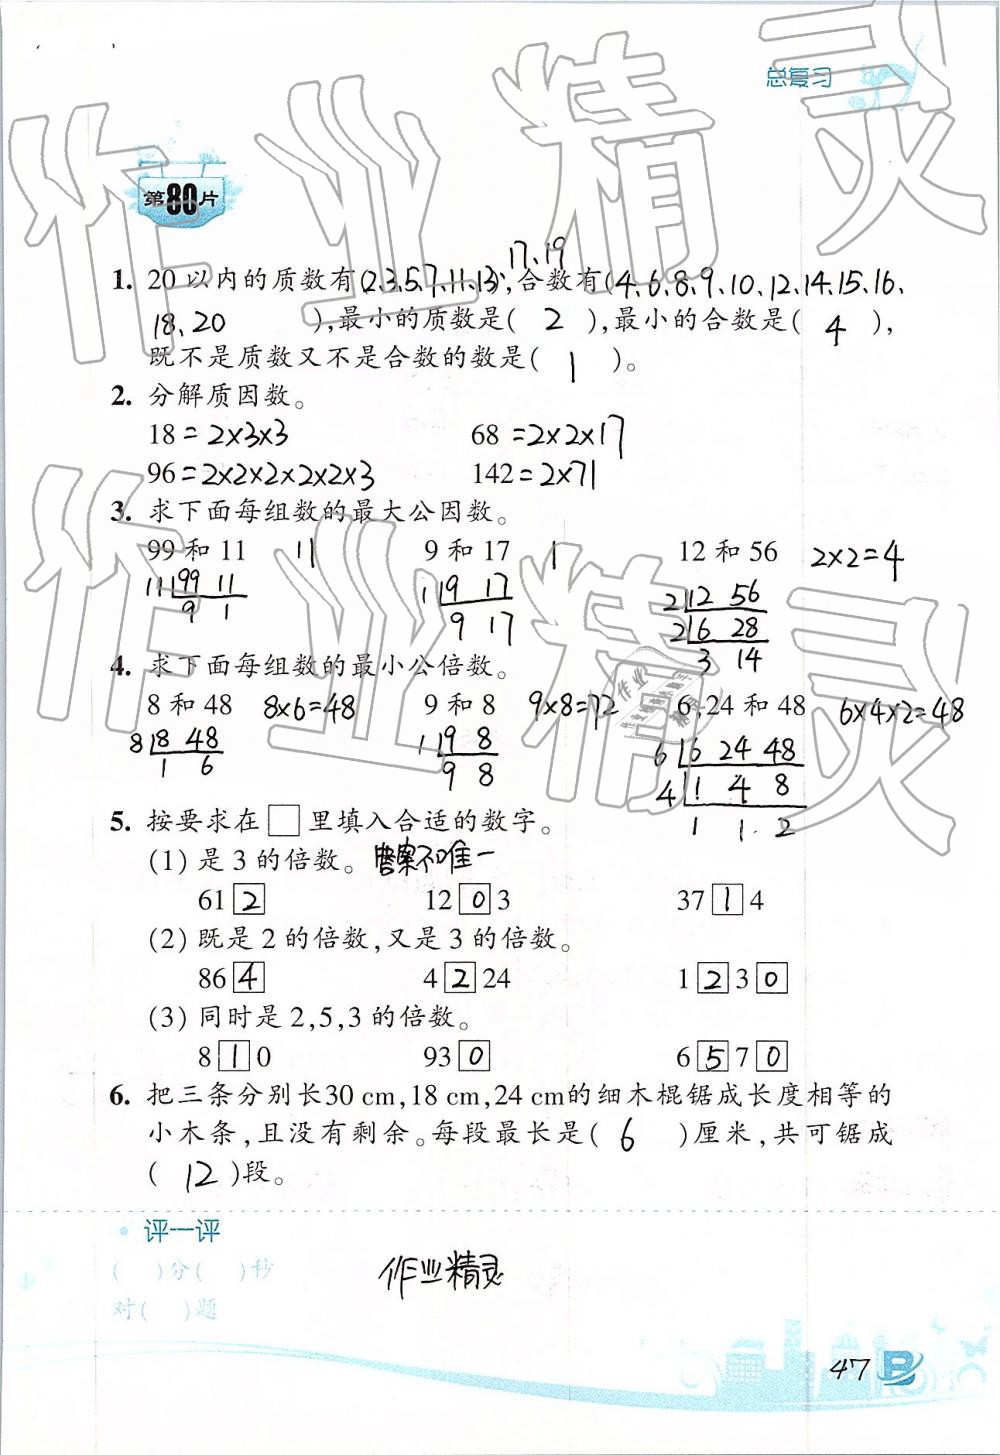 总复习
第80片
17、19
1. 20以内的质数有(2、3、5、7、11、13、合数有(4、6、8、9、10、12、14、15、16、
18、20 ),最小的质数是( 2 ),最小的合数是( 4 ),
既不是质数又不是合数的数是( 1 )。
2. 分解质因数。
18=2×3×3 68=2×2×17
96=2×2×2×2×2×3 142=2×71
3. 求下面每组数的最大公因数。
99和11 11 9和17 1 12和56 2×2=4
11 99 11 1 9 17 2 12 56
9 1 9 17 2 6 28
3 14
4. 求下面每组数的最小公倍数。
8和48 8×6=48 9和8 9×8=72 6,24和48 6×4×2=48
8 8 48 1 9 8 6 6 24 48
1 6 9 8 4 1 4 8
1 1 2
5. 按要求在□里填入合适的数字。
(1)是3的倍数。答案不唯一
61 2 12 0 3 37 1 4
(2)既是2的倍数,又是3的倍数。
86 4 4 2 24 1 2 3 0
(3)同时是2,5,3的倍数。
8 1 0 93 0 6 5 7 0
6. 把三条分别长30 cm,18 cm,24 cm的细木棍锯成长度相等的
小木条,且没有剩余。每段最长是( 6 )厘米,共可锯成
( 12 )段。
评一评
( )分( )秒
对( )题
作业精灵
47
作业精灵
作业精灵